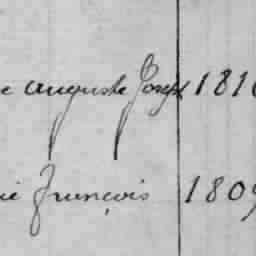 auguste Joseph 181
françois 1809